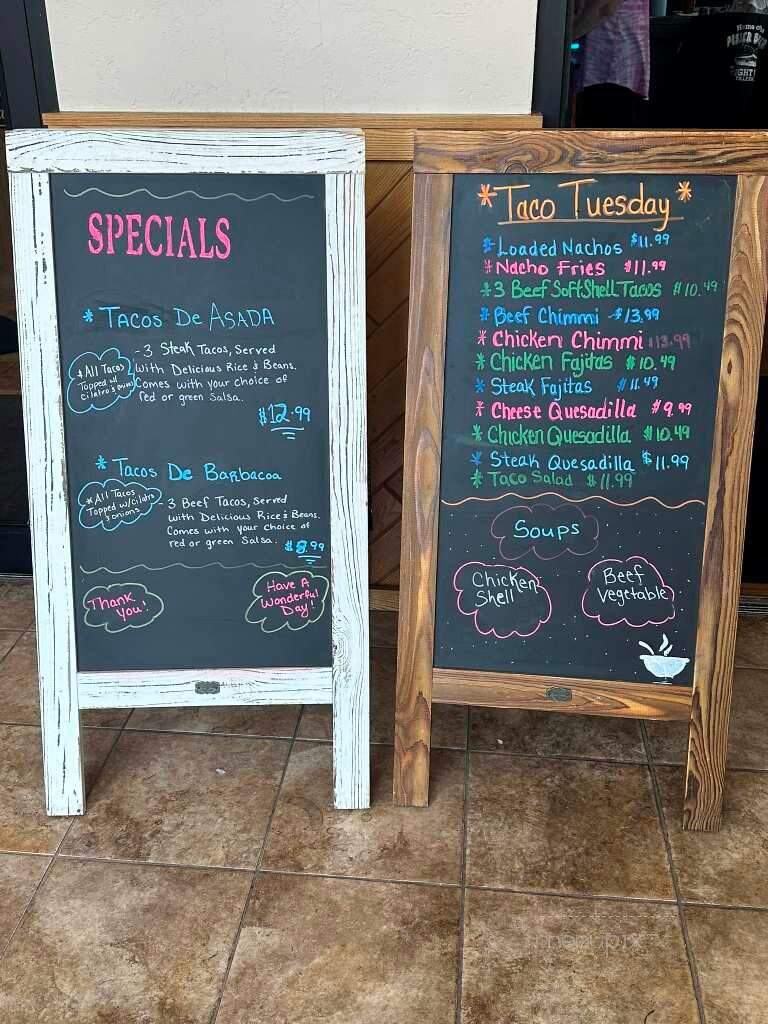 SPECIALS
* Tacos De Asada
* All Tacos
Topped w/
Cilatro & onions
- 3 Steak Tacos, Served
with Delicious Rice & Beans.
Comes with your choice of
red or green Salsa.
$12.99
* Tacos De Barbacoa
* All Tacos
Topped w/cilatro
& onions
- 3 Beef Tacos, Served
with Delicious Rice & Beans.
Comes with your choice of
red or green Salsa.
$8.99
Thank
You!
Have A
Wonderful
Day!
* Taco Tuesday *
* Loaded Nachos $11.99
* Nacho Fries $11.99
* 3 Beef Soft Shell Tacos $10.49
* Beef Chimmi - $13.99
* Chicken Chimmi $13.99
* Chicken Fajitas $10.49
* Steak Fajitas $11.49
* Cheese Quesadilla $9.99
* Chicken Quesadilla $10.49
* Steak Quesadilla $11.99
* Taco Salad $11.99
Soups
Chicken
Shell
Beef
Vegetable